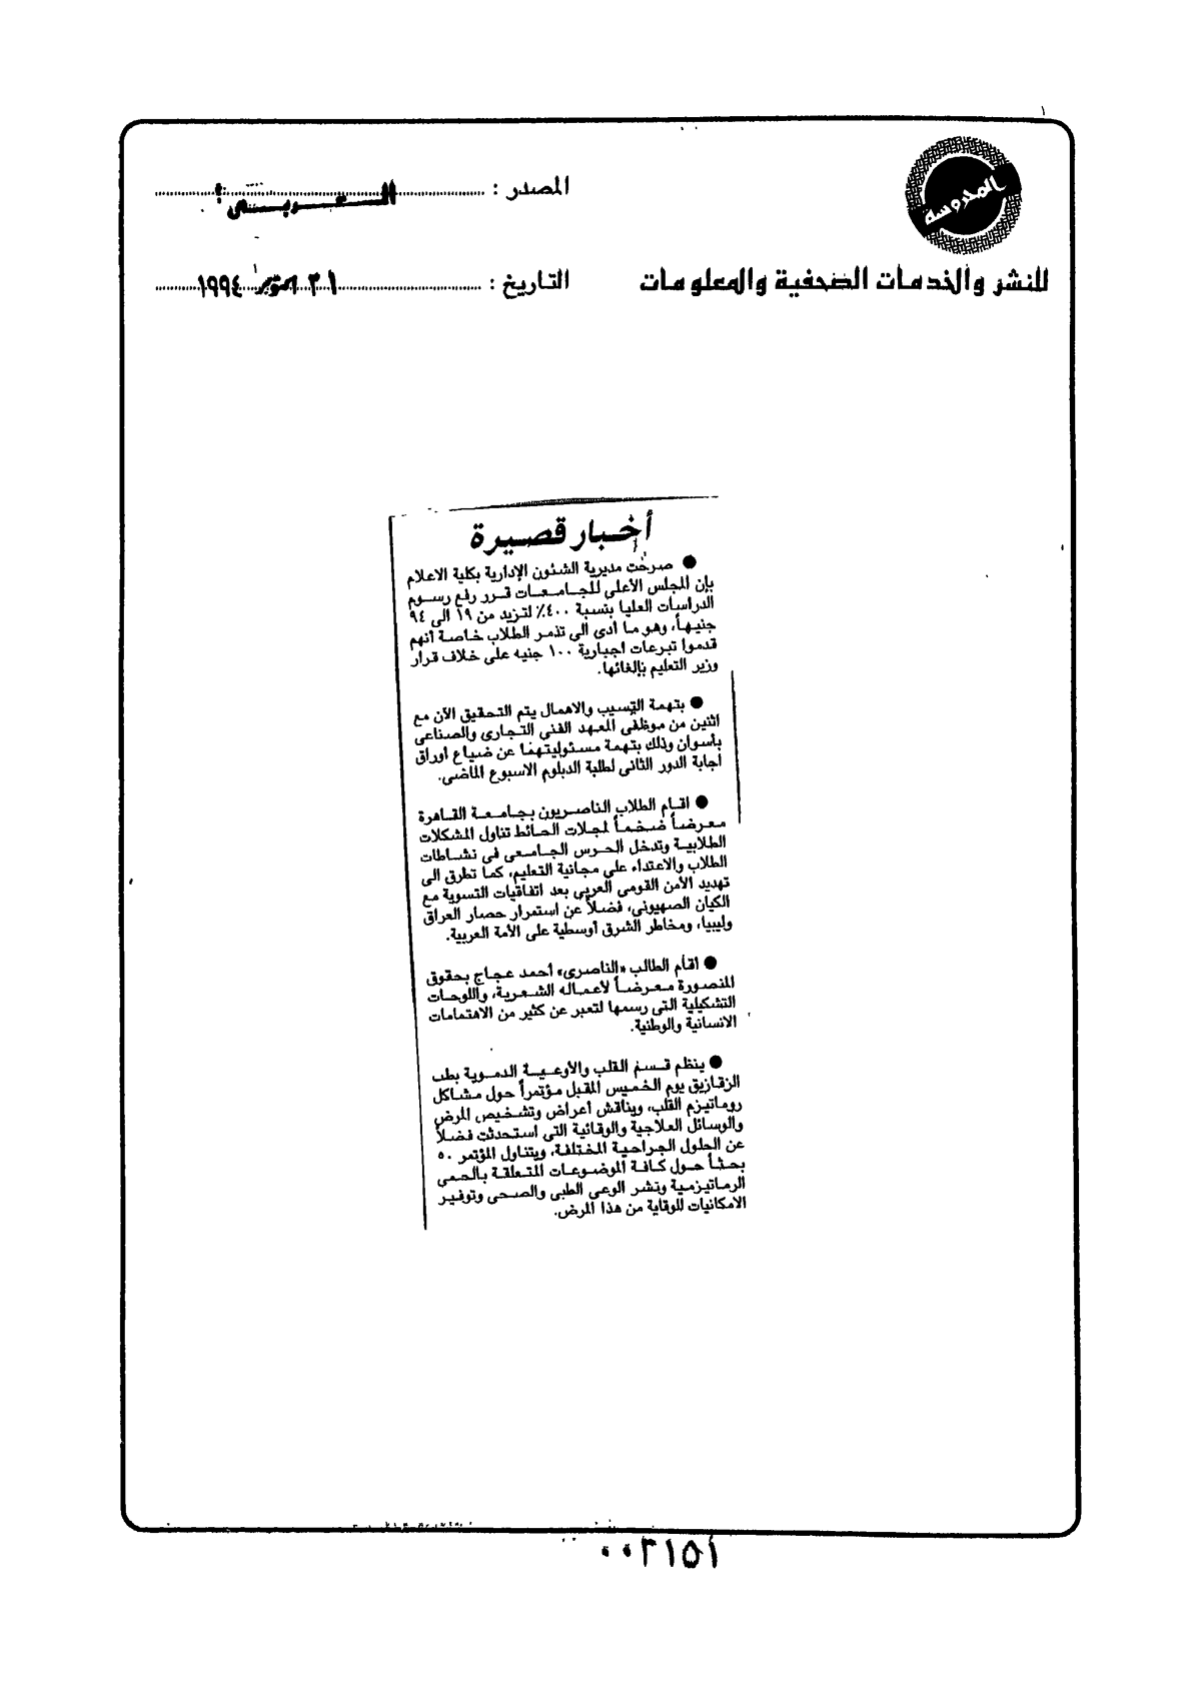 المحروسة
للنشر والخدمات الصحفية والمعلومات
المصدر : العربى
التاريخ : ٣١ أكتوبر ١٩٩٤
أخبار قصيرة
● صرحت مديرية الشئون الإدارية بكلية الاعلام
بإن المجلس الأعلى للجامعات قرر رفع رسوم
الدراسات العليا بنسبة ٤٠٠٪ لتزيد من ١٩ الى ٩٤
جنيهاً، وهو ما أدى الى تذمر الطلاب خاصة أنهم
قدموا تبرعات اجبارية ١٠٠ جنيه على خلاف قرار
وزير التعليم بإلغائها.
● بتهمة التسيب والاهمال يتم التحقيق الآن مع
اثنين من موظفى المعهد الفنى التجارى والصناعى
بأسوان وذلك بتهمة مسئوليتهما عن ضياع اوراق
اجابة الدور الثانى لطلبة الدبلوم الاسبوع الماضى.
● اقام الطلاب الناصريون بجامعة القاهرة
معرضاً ضخماً لمجلات الحائط تناول المشكلات
الطلابية وتدخل الحرس الجامعى فى نشاطات
الطلاب والاعتداء على مجانية التعليم، كما تطرق الى
تهديد الأمن القومى العربى بعد اتفاقيات التسوية مع
الكيان الصهيونى، فضلاً عن استمرار حصار العراق
وليبيا، ومخاطر الشرق أوسطية على الأمة العربية.
● اقام الطالب «الناصرى» أحمد عجاج بحقوق
المنصورة معرضاً لأعماله الشعرية، واللوحات
التشكيلية التى رسمها لتعبر عن كثير من الاهتمامات
الانسانية والوطنية.
● ينظم قسم القلب والأوعية الدموية بطب
الزقازيق يوم الخميس المقبل مؤتمراً حول مشاكل
روماتيزم القلب، ويناقش أعراض وتشخيص المرض
والوسائل العلاجية والوقائية التى استحدثت فضلاً
عن الحلول الجراحية المختلفة، ويتناول المؤتمر ٥٠
بحثاً حول كافة الموضوعات المتعلقة بالحمى
الرماتيزمية ونشر الوعى الطبى والصحى وتوفير
الامكانيات للوقاية من هذا المرض.